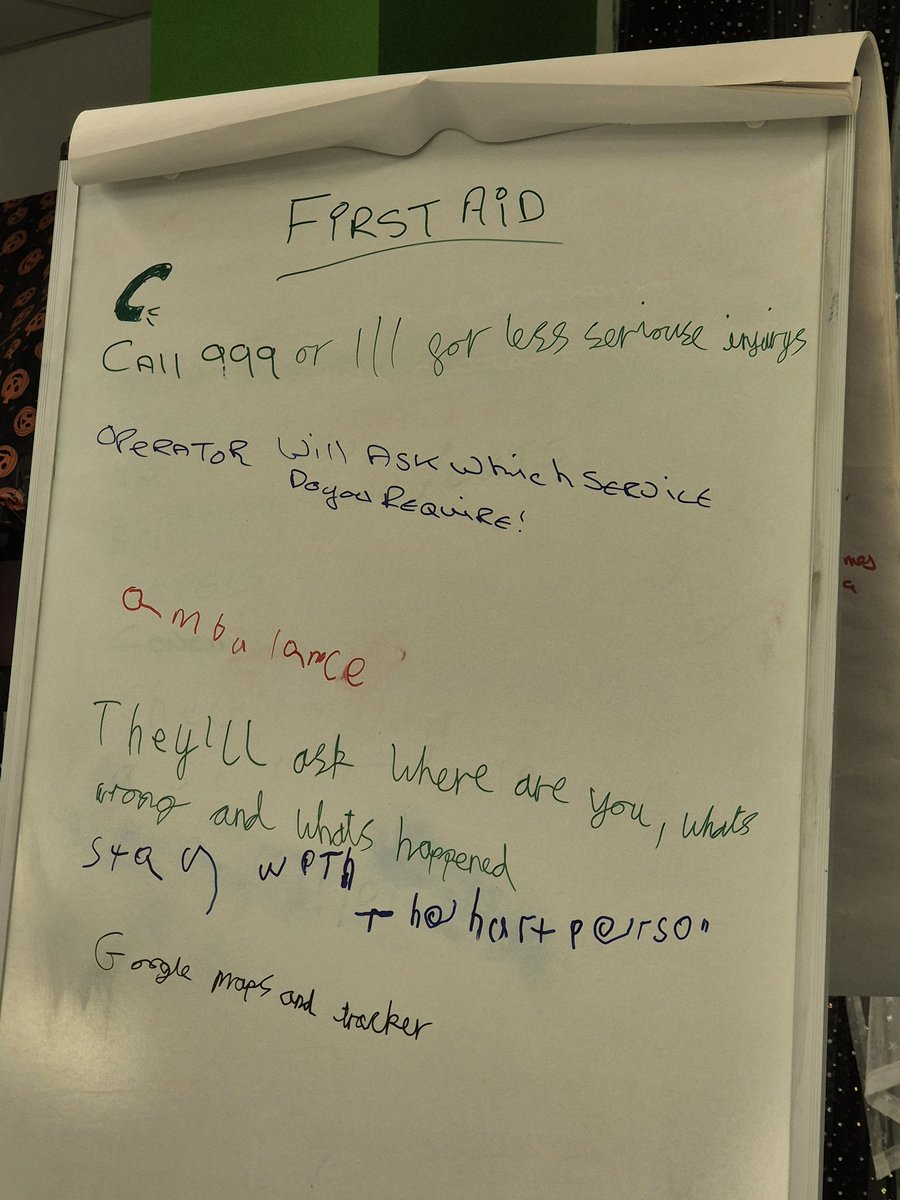 FiRST AiD
C
CAll 999 or 111 for less seriouse injurys
OPERATOR Will ASK which SERVICE
Do you REQUIRE!
ambulance
They'll ask where are you, whats
wrong and whats happened
stay with
the hurt person
Google maps and tracker
mes
a